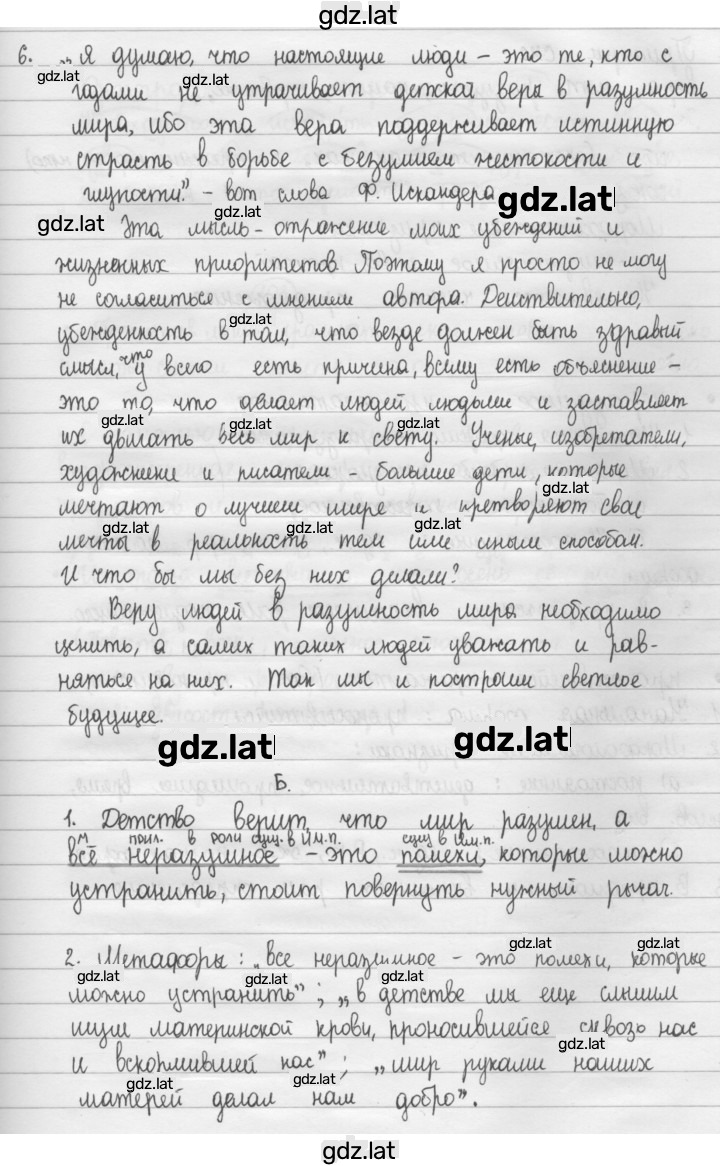 gdz.lat
6. „Я думаю, что настоящие люди – это те, кто с
gdz.lat gdz.lat gdz.lat
годами не утрачивает детской веры в разумность
мира, ибо эта вера поддерживает истинную
страсть в борьбе с безумием жестокости и
глупости." – вот слова Ф. Искандера
gdz.lat gdz.lat gdz.lat
Эта мысль – отражение моих убеждений и
жизненных приоритетов. Поэтому я просто не могу
не согласиться с мнением автора. Действительно,
gdz.lat
убежденность в том, что везде должен быть здравый
смысл, что у всего есть причина, всему есть объяснение –
это то, что делает людей людьми и заставляет
gdz.lat gdz.lat gdz.lat
их двигать весь мир к свету. Ученые, изобретатели,
художники и писатели – большие дети, которые
gdz.lat
мечтают о лучшем мире и претворяют свои
gdz.lat gdz.lat gdz.lat
мечты в реальность тем или иным способом.
И что бы мы без них делали?
Веру людей в разумность мира необходимо
ценить, а самих таких людей уважать и рав-
няться на них. Так мы и построим светлое
будущее.
gdz.lat gdz.lat
Б.
1. Детство верит, что мир разумен, а
м прил. в роли сущ. в И.п. сущ в И.п.
всё неразумное – это помехи, которые можно
устранить, стоит повернуть нужный рычаг.
2. Метафоры: „все неразумное – это помехи, которые
gdz.lat gdz.lat gdz.lat gdz.lat
можно устранить"; „в детстве мы еще слышим
шум материнской крови, проносившейся сквозь нас
gdz.lat
и вскормившей нас"; „мир руками наших
gdz.lat gdz.lat
матерей делал нам добро".
gdz.lat